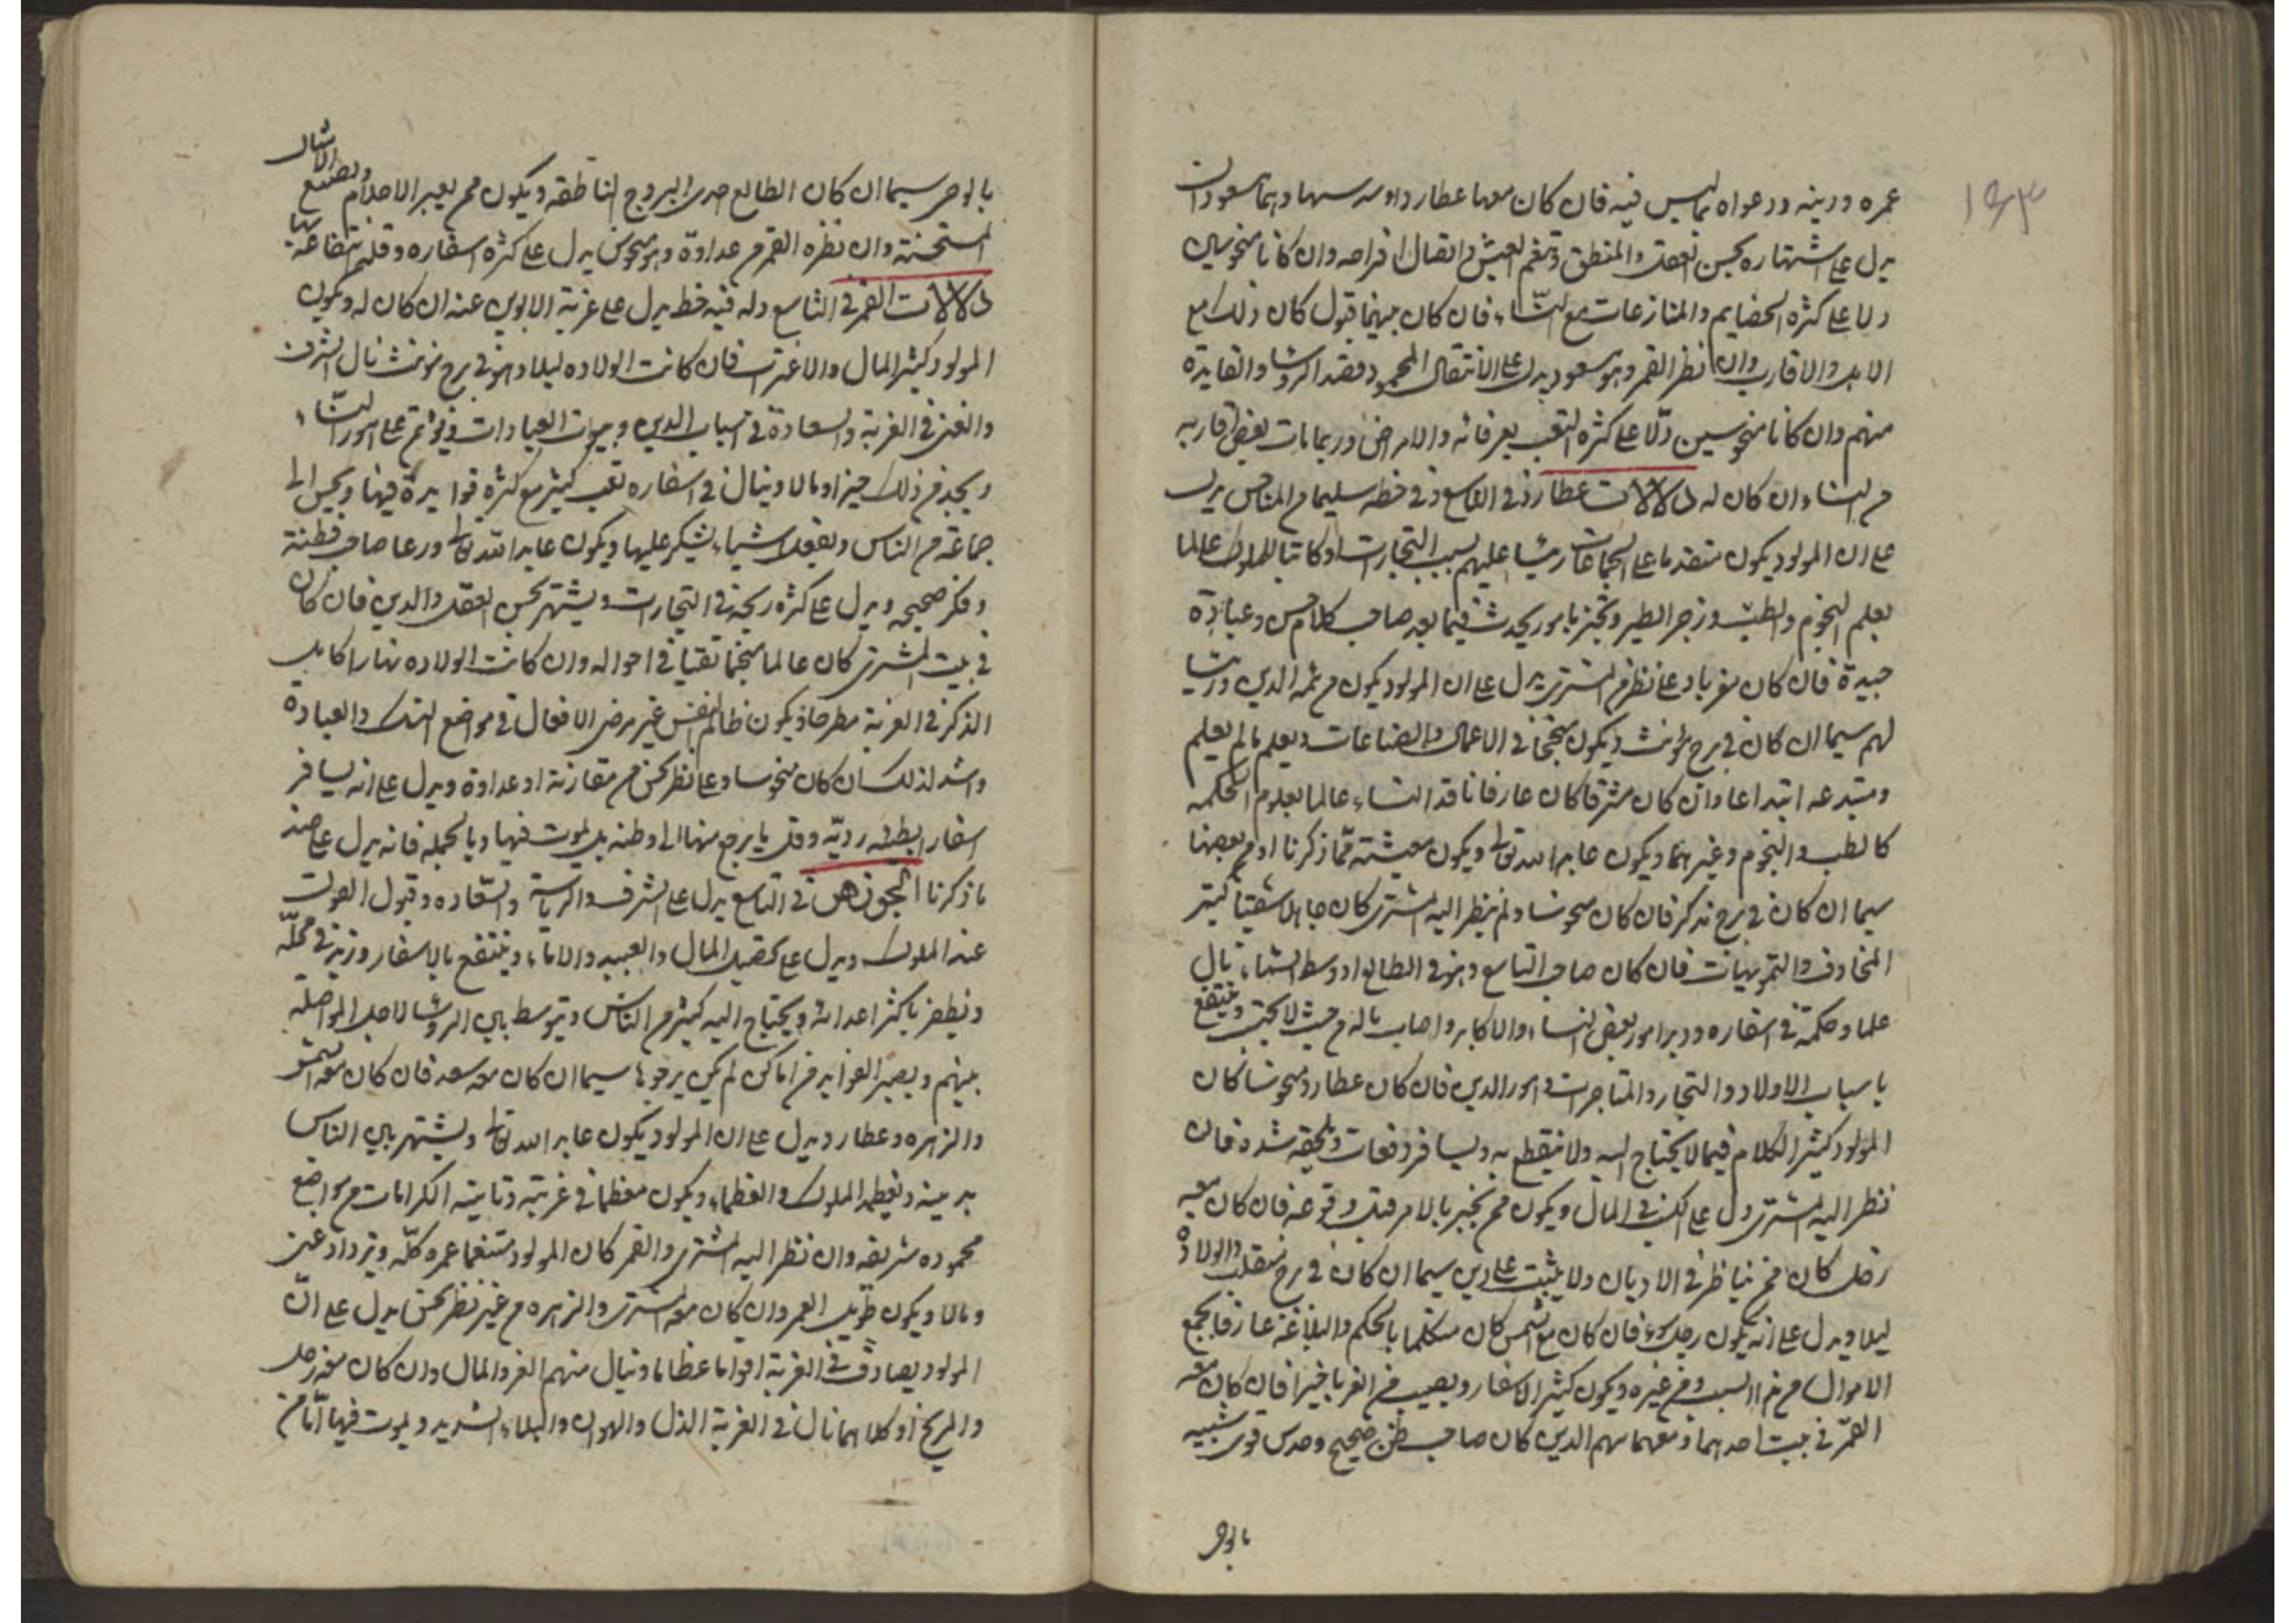 ١٩٣
عمره ودينه ودعواه بما ليس فيه فان كان معها عطارد او سهمها وهما مسعودان
يدل على اشتهاره بحسن العقل والمنطق وتنعم العيش واتصال افراحه وان كانا منحوسين
دلا على كثرة الخصايم والمنازعات مع النساء فان كان بينهما قبول كان ذلك مع
الاهل والاقارب وان نظر القمر وهو مسعود يدل على الانتقال المحمود وقصد الروسا والفايدة
منهم وان كانا منحوسين دلا على كثرة التعب بعرفائه والامراض وربما مات بعض اقاربه
من النساء وان كان له دلالات عطارد في التاسع وفي حظه سليما من المناحس يدل
على ان المولود يكون متقدما على الجماعات رئيسا عليهم بسبب التجارات او كاتبا للملوك عالما
بعلم النجوم والطب وزجر الطير ويخبر بامور يحدث فيما بعد صاحب كلام حسن وعبادة
جيدة فان كان مغربا وعلى نظر من المشتري يدل على ان المولود يكون من ائمة الدين ورئيسا
لهم سيما ان كان في برج مؤنث ويكون في الاعمال والصناعات ويعلم ما لم يعلم
ويبتدعه ابتداعا وان كان مشرقا كان عارفا ناقد النساء عالما بعلوم الحكمه
كالطب والنجوم وغيرهما ويكون عابد الله تعالى ويكون معيشته مما ذكرنا او من بعضها
سيما ان كان في برج مذكر فان كان منحوسا ولم ينظر اليه المشتري كان جاهلا شقيا كثير
المخاوف والتمويهات فان كان صاحب التاسع وهو في الطالع او وسط السماء نال
علما وحكمة في اسفاره ودبر امور بعض النساء والاكابر واصاب مالا من حيث لا يحتسب وينتفع
باسباب الاولاد والتجار والمتاجرات وامور الدين فان كان عطارد منحوسا كان
المولود كثير الكلام فيما لا يحتاج اليه ولا ينقطع به ويسافر دفعات ويلحقه شدة فان
نظر اليه المشتري دل على الكسب في المال ويكون ممن يخبر بالامر قبل وقوعه فان كان معه
زحل كان ممن يناظر في الاديان ولا يثبت على دين سيما ان كان في برج منقلب والولادة
ليلا ويدل على انه يكون رجل سوء فان كان مع الشمس كان متكلما بالحكم والبلاغة عارفا بجميع
الاموال من هذا السبب ومن غيره ويكون كثير الاسفار ويصيب من الغربا خيرا فان كان معه
القمر في بيت احدهما ومعهما سهم الدين كان صاحب ظن صحيح وحدس قوي شبيه
بالوحي
بالوحي سيما ان كان الطالع احدى البروج الناطقه ويكون ممن يعبر الاحلام ويصنع الامثال
المستحسنة وان نظره القمر من عداوة وهو منحوس يدل على كثرة اسفاره وقلة انتفاعه بها
دلالات القمر في التاسع وله فيه حظ يدل على غربة الابوين عنه ان كان له ويكون
المولود كثير المال والاغتراب فان كانت الولادة ليلا وهو في برج مؤنث نال الشرف
والغنى في الغربة والسعادة في اسباب الدين وبيوت العبادات على امور النساء
ويجد من ذلك خيرا ومالا وينال في اسفاره تعب كثير مع كثرة فوايده فيها ويحسن الى
جماعة من الناس ويفعل اشياء يشكر عليها ويكون عابد الله تعالى ورعا صاحب فطنة
وفكر صحيح ويدل على كثرة ربحه في التجارات ويشتهر بحسن العقل والدين فان كان
في بيت المشتري كان عالما منجما تقيا في احواله وان كانت الولادة نهارا كان
الذكر في الغربة مطرحا ويكون ظالم النفس غير مرضي الافعال في مواضع النسك والعبادة
واشد لذلك ان كان منحوسا وعلى نظر نحس من مقارنة او عداوة ويدل على انه يسافر
اسفار ابطيئه رديه وقل ما يرجع منها الى وطنه بل يموت فيها وبالجمله فانه يدل على ضد
ما ذكرنا الجوزهر في التاسع يدل على الشرف والرياسة والسعاده وقبول القول
عند الملوك ويدل على تحصيل المال والعبيد والاماء وينتفع بالاسفار وتزيد في محله
ويظفر باكثر اعدائه ويحتاج اليه كثير من الناس ويتوسط بين الروسا لاجل المواصلة
بينهم ويصير الفوايد من اماكن لم يكن يرجوها سيما ان كان معه سعد فان كان معه المشتري
والزهره وعطارد يدل على ان المولود يكون عابد الله تعالى ويشتهر بين الناس
بدينه ويعظمه الملوك والعظماء ويكون معظما في غربته وتاتيه الكرامات من مواضع
محموده شريفه وان نظر اليه المشتري والقمر كان المولود متنعما عمره كله ويزداد عز
ومالا ويكون طويل العمر وان كان معه المشتري والزهره من غير نظر نحس يدل على ان
المولود يصادف في الغربة اقواما عظاما وينال منهم العز والمال وان كان معه زحل
والمريخ او كلاهما نال في الغربة الذل والهوان والبلاء الشديد ويموت فيها اما من